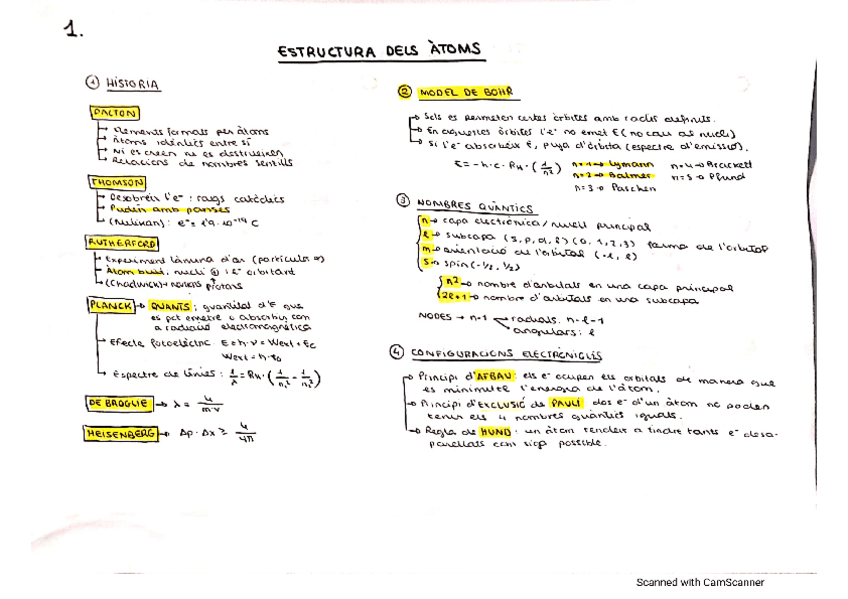 1.
ESTRUCTURA DELS ÀTOMS
① HISTORIA
DALTON
Elements formats per àtoms
Àtoms idèntics entre sí
Ni es creen ni es destrueixen
Relacions de nombres sentills
THOMSON
Descobreix l'e⁻: raigs catòdics
Pudin amb panses
(Millikan): e⁻=
RUTHERFORD
Experiment làmina d'or (partícules α)
Àtom buit. nucli ⊕ i e⁻ orbitant
(Chadwick)→ protons
PLANCK → QUANTS: quantitat d'E que
es pot emetre o absorbir com
a radiació electromagnètica
Efecte fotoelèctric. E=h·ν = Wext + Ec
Wext = h·ν₀
Espectre de línies: 1/λ = R_H · (1/n₁² - 1/n₂²)
DE BROGLIE → λ = h/m·v
HEISENBERG → Δp·Δx ≥ h/4π
② MODEL DE BOHR
Sols es permeten certes òrbites amb radis definits.
En aquestes òrbites l'e⁻ no emet E (no cau al nucli)
Si l'e⁻ absorbeix E, puja d'òrbita (espectre d'emissió).
E = -h·c·R_H·(1/n²) n=1→Lymann n=4→Brackett
n=2→Balmer n=5→Pfund
n=3→Paschen
③ NOMBRES QUÀNTICS
n→ capa electrònica/nivell principal
l→ subcapa (s,p,d,f) (0,1,2,3) forma de l'orbital
m→ orientació de l'orbital (-l, l)
s→ spin (-1/2, 1/2)
n²→ nombre d'orbitals en una capa principal
2l+1→ nombre d'orbitals en una subcapa
NODES → n-1 radials. n-l-1
angulars: l
④ CONFIGURACIONS ELECTRÒNIQUES
Principi d'AFBAU: els e⁻ ocupen els orbitals de manera que
es minimitte l'energia de l'àtom.
Principi d'EXCLUSIÓ de PAULI dos e⁻ d'un àtom no poden
tenir els 4 nombres quàntics iguals.
Regla de HUND: un àtom tendeix a tindre tants e⁻ desa-
parellats com siga possible.
Scanned with CamScanner